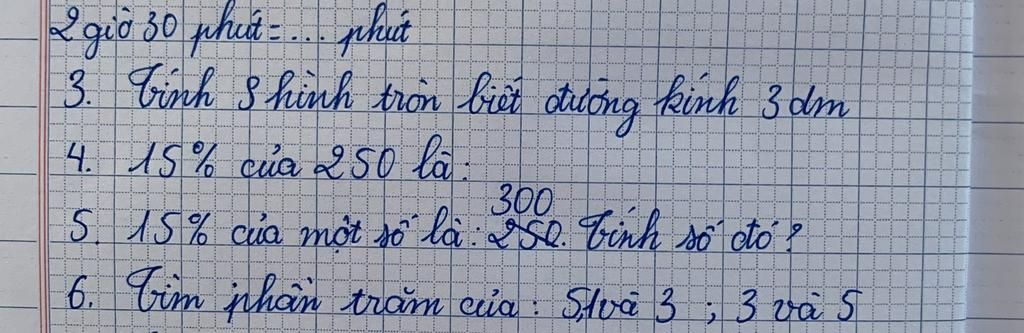 2 giờ 30 phút = ... phút
3. Tính S hình tròn biết đường kính 3 dm
4. 15% của 250 là:
300
5. 15% của một số là: 250. Tính số đó?
6. Tìm phần trăm của: 5,1 và 3 ; 3 và 5